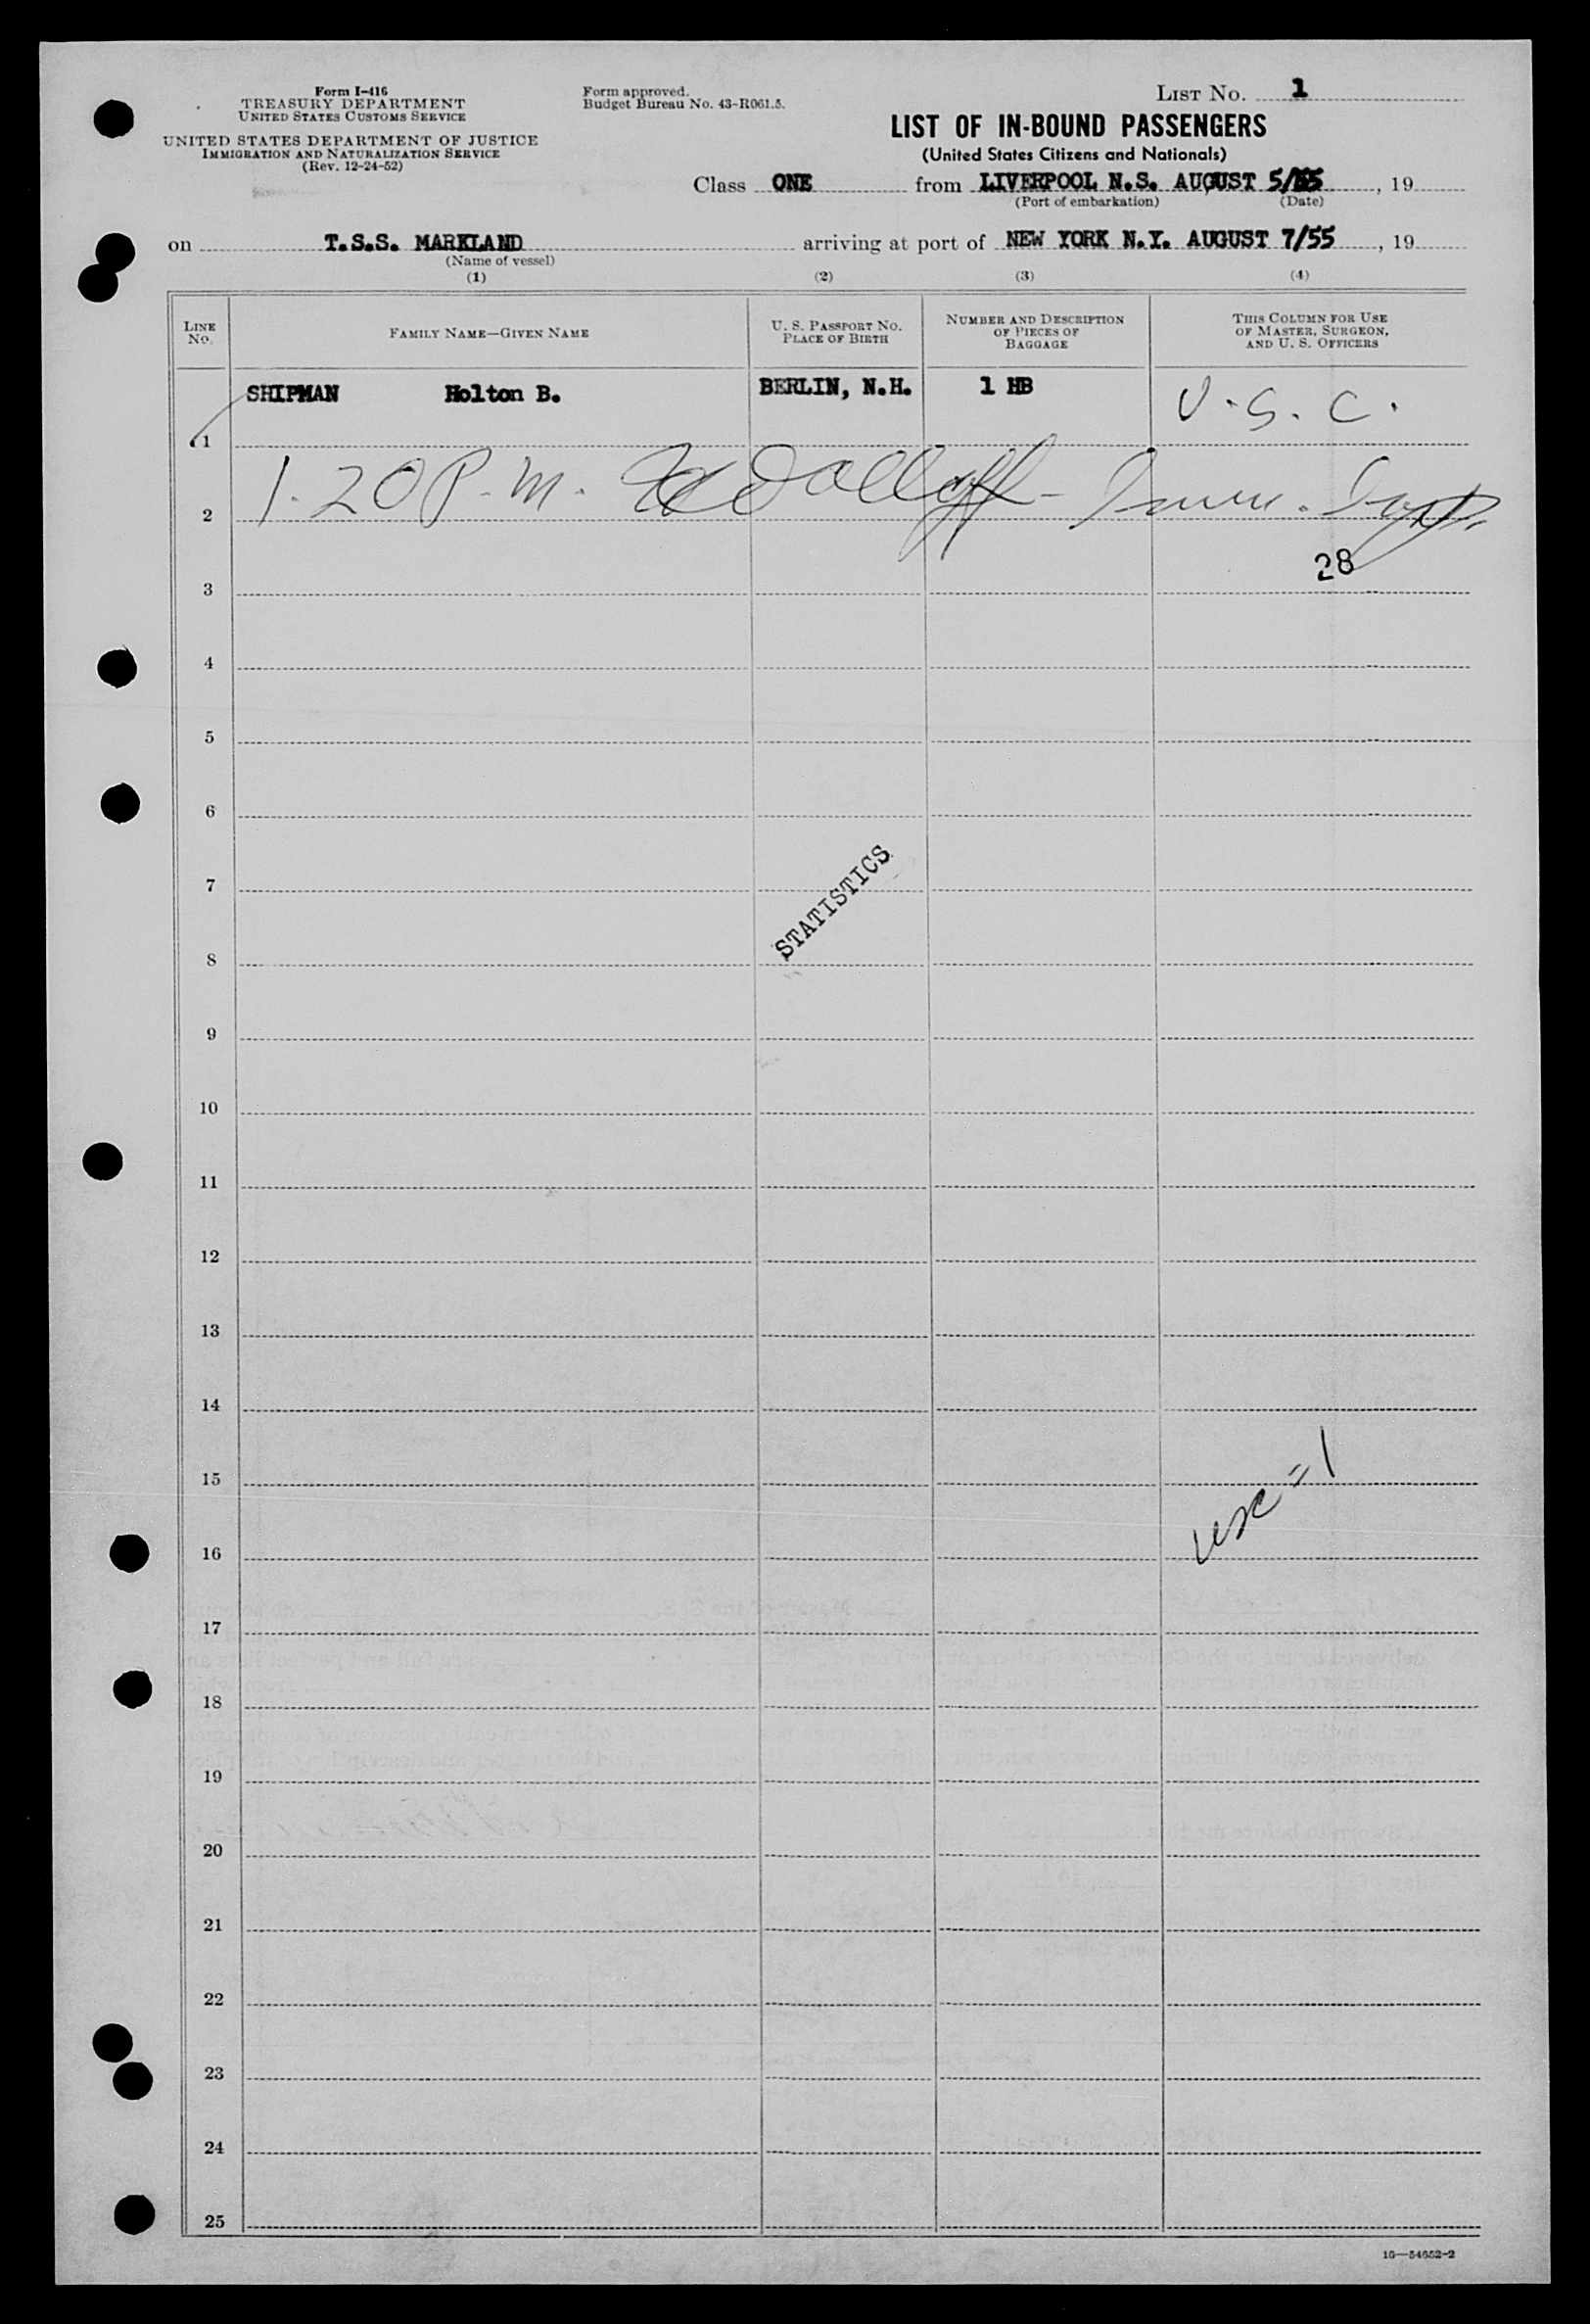 Form I-416
TREASURY DEPARTMENT
UNITED STATES CUSTOMS SERVICE
UNITED STATES DEPARTMENT OF JUSTICE
IMMIGRATION AND NATURALIZATION SERVICE
(Rev. 12-24-52)
Form approved.
Budget Bureau No. 43-R061.5.
LIST No. 1
LIST OF IN-BOUND PASSENGERS
(United States Citizens and Nationals)
Class ONE from LIVERPOOL N.S. AUGUST 5/55, 19
(Port of embarkation) (Date)
on T.S.S. MARKLAND arriving at port of NEW YORK N.Y. AUGUST 7/55, 19
(Name of vessel)
(1) (2) (3) (4)
LINE No. FAMILY NAME—GIVEN NAME U. S. PASSPORT No. PLACE OF BIRTH NUMBER AND DESCRIPTION OF PIECES OF BAGGAGE THIS COLUMN FOR USE OF MASTER, SURGEON, AND U. S. OFFICERS
1 SHIPMAN Holton B. BERLIN, N.H. 1 HB U.S.C.
2 1.20 P.M. Imm. Insp.
28
3
4
5
6
7
STATISTICS
8
9
10
11
12
13
14
15
usc = 1
16
17
18
19
20
21
22
23
24
25
16—54652-2